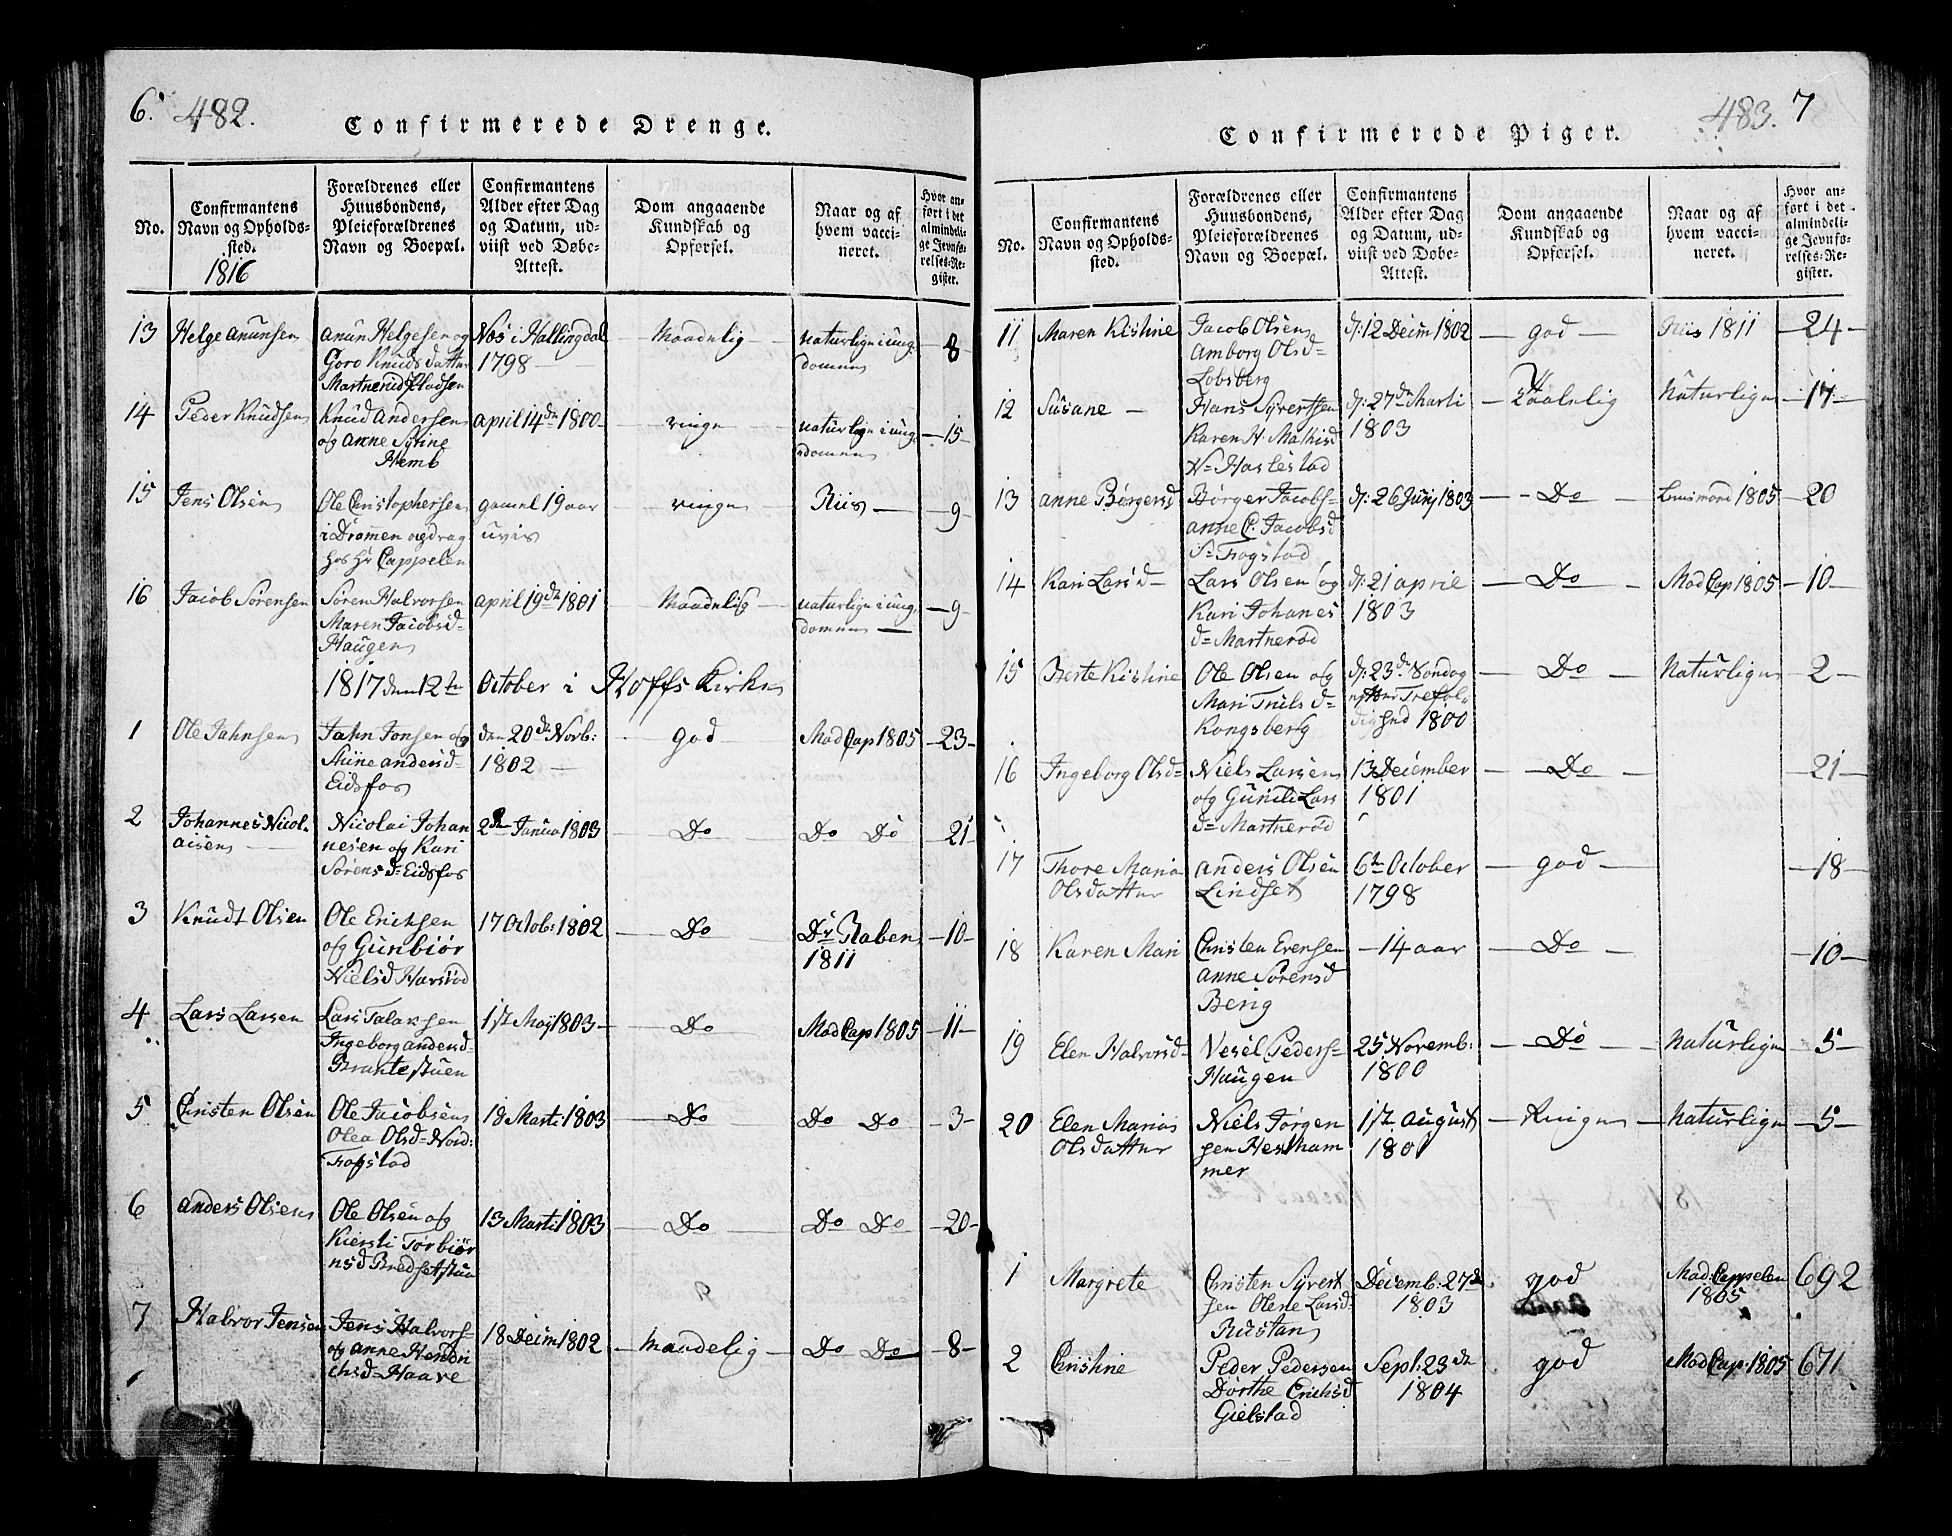 6. 482.
Confirmerede Drenge.
No.
Confirmantens
Navn og Opholds-
sted.
1816
Forældrenes eller
Huusbondens,
Pleieforældrenes
Navn og Boepæl.
Confirmantens
Alder efter Dag
og Datum, ud-
viist ved Døbe-
Attest.
Dom angaaende
Kundskab og
Opførsel.
Naar og af
hvem vacci-
neret.
Hvor an-
ført i det
almindeli-
ge Jevnfø-
relses-Re-
gister.
13 Helge Anunsen
Anun Helgesen og
Goro Knudsdatter
Nøs i Hallingdal
1798
Maadelig
naturlige i ung
domen
8
14 Peder Knudsen
Knud Andersen
og Anne
Hemb
April 14de 1800
ringe
naturlige i ung
domen
15
15 Jens Olsen
Ole Christophersen
i Dramen opdrag
hos Hr Cappelen
gamel 19 aar
uvis
ringe
Riis
9
16 Jacob Sørensen
Søren Halvorsen
Maren Jacobsd=
Haugen
April 19de 1801
Maadelig
naturlige i ung
domen
9
1817 den 12te October i Hoffs Kirke
1 Ole Jahnsen
Jahn Jonsen og
Andersd=
Eidsfos
den 20de Novb:
1802
god
Mad Cap 1805
23
2 Johannes Nicol
aisen
Nicolai Johan
nesen og Kari
Sørensd= Eidsfos
2de Janua 1803
Do
Do Do
21
3 Knudt Olsen
Ole Ericksen
og Gunbiør
Nielsd
17 Octob: 1802
Do
Dr Raben
1811
10
4 Lars Larsen
Lars Talaksen
Ingeborg Andersd=
1ste Maj 1803
Do
Mad Cap 1805
11
5 Christen Olsen
Ole Jacobsen
Olea Olsd= Nord:
Fogstad
18 Marti 1803
Do
Do Do
3
6 Anders Olsen
Ole Olsen og
Kiersti Torbiør
nsd Bredsetstua
13 Marti 1803
Do
Do Do
20
7 Halvor Jensen
Jens Halvors=
og Anne Hendri
chsd= Haare
18 Decim 1802
Maadelig
Do Do
8
483. 7
Confirmerede Piger.
No.
Confirmantens
Navn og Opholds-
sted.
Forældrenes eller
Huusbondens,
Pleieforældrenes
Navn og Boepæl.
Confirmantens
Alder efter Dag
og Datum, ud-
viist ved Døbe-
Attest.
Dom angaaende
Kundskab og
Opførsel.
Naar og af
hvem vacci-
neret.
Hvor an-
ført i det
almindeli-
ge Jevnfø-
relses-Re-
gister.
11 Maren Kistine
Jacob Olsen
Amborg Olsd=
Lobsberg
d: 12 Decim 1802
god
Riis 1811
24
12 Susane
Hans Syvertsen
Karen H. Mathisd
N= Hastestad
d: 27de Marti
1803
Naturlige
17
13 Anne Børgersd
Børger Jacobs=
Anne C. Jacobsd
S= Fogstad
d: 26 Junj 1803
Do
1805
20
14 Kari Larsd=
Lars Olsen og
Kari Johanes
d= Martnerød
d: 21 April
1803
Do
Mad Cap 1805
10
15 Berte Kistine
Ole Olsen og
Mari Trulsd=
Kongsberg
d: 23de Søndag
efter Trefol
dighed 1800
Do
Naturlige
2
16 Ingeborg Olsd=
Niels Larsen
og Gunild Lars
d= Martnerød
13 December
1801
Do
21
17 Thore Maria
Olsdatter
Anders Olsen
Lindset
6te October
1798
god
18
18 Karen Mari
Christen Evensen
Anne Sørensd
Berig
14 aar
Do
10
19 Elen Halvorsd=
Vesel Peders=
Haugen
25 Novemb:
1800
Do
Naturlige
5
20 Elen Maria
Olsdatter
Niels Jørgen
sen Hestham
mer
1ste August
1801
Ringe
Naturlige
5
1 Margrete
Christen Syvert
sen Olene Larsd=
Rustan
Decemb: 27de
1803
god
Mad: Cappelen
1805
692
2 Christine
Peder Pedersen
Dorthe Erichsd
Gielstad
Sept: 23de
1804
god
Mad Cap. 1805
671